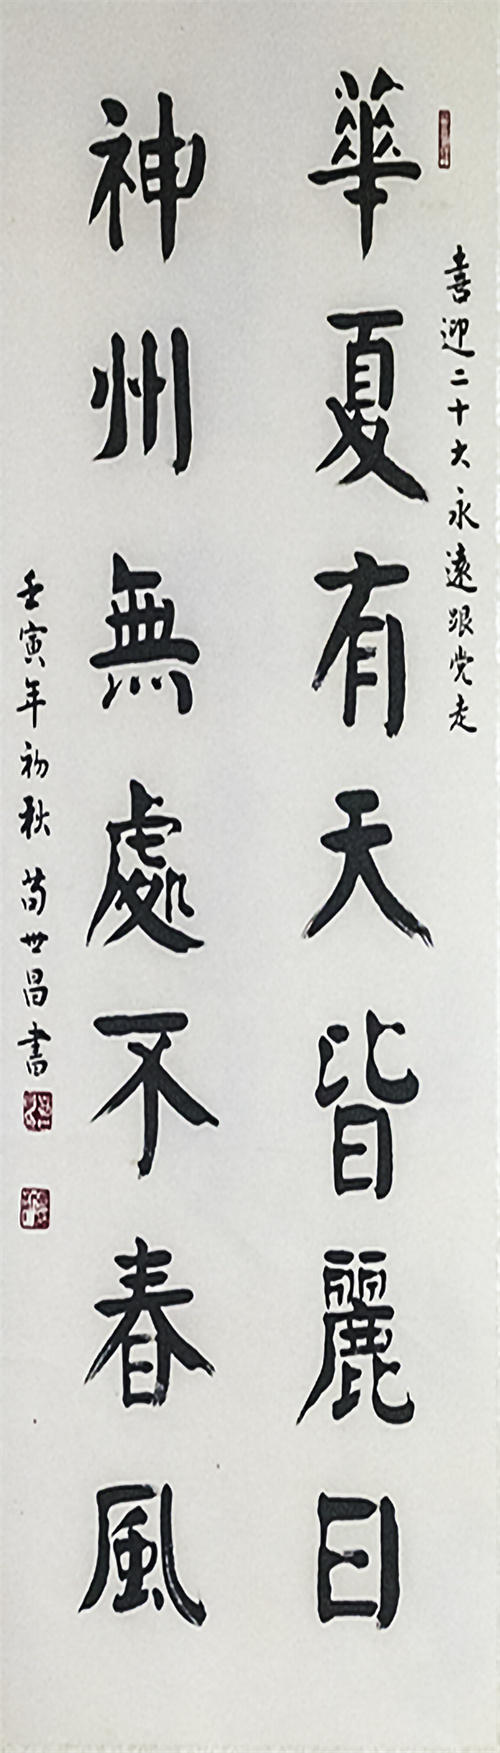 喜迎二十大永遠跟党走
華夏有天皆麗日
神州無處不春風
壬寅年初秋苟世昌書